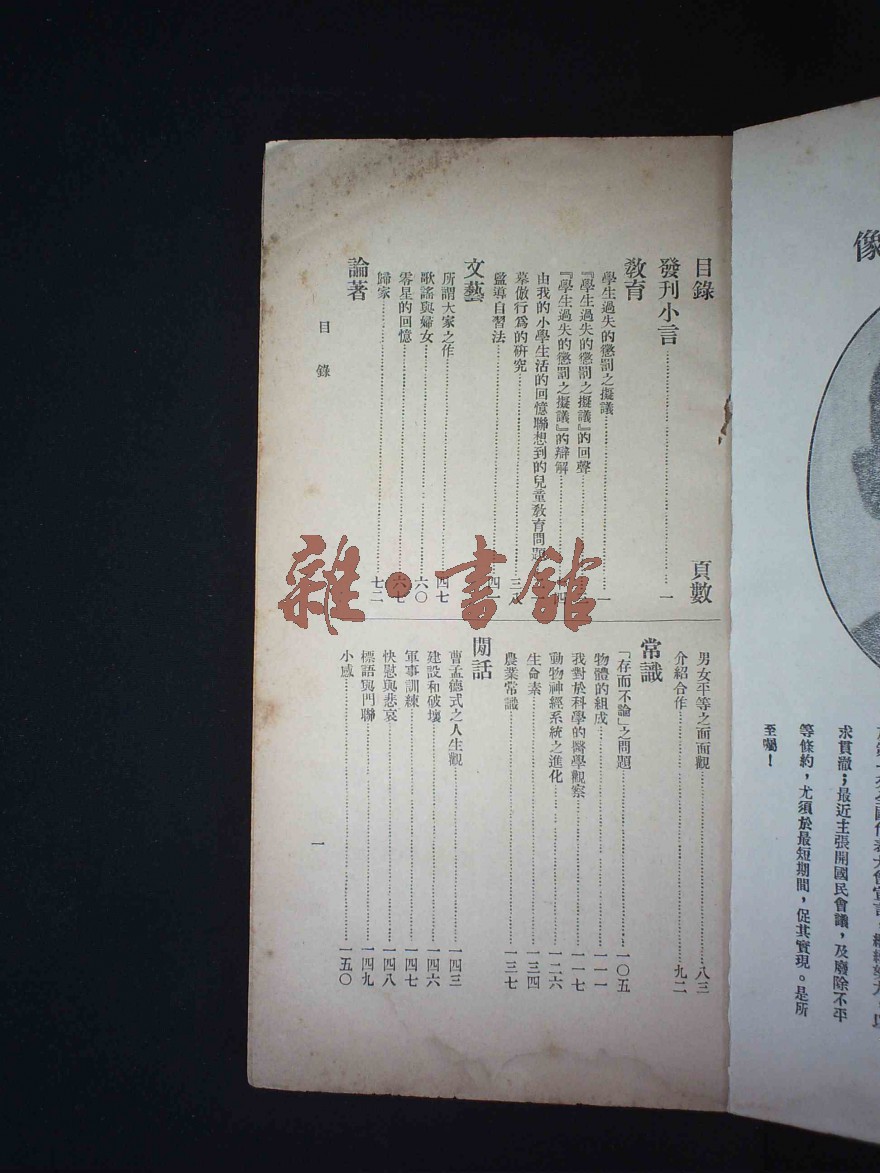 像
求貫澈；最近主張開國民會議，及廢除不平
等條約，尤須於最短期間，促其實現。是所
至囑！
目錄 頁數
發刋小言 一
敎育
學生過失的懲罰之擬議 一
『學生過失的懲罰之擬議』的回聲
『學生過失的懲罰之擬議』的辯解
由我的小學生活的回憶聯想到的兒童敎育問題
摹倣行爲的硏究 三八
監導自習法
文藝
所謂大家之作 四七
歌謠與婦女 六〇
零星的回憶 六七
歸家 七二
論著
男女平等之面面觀 八三
介紹合作 九二
常識
「存而不論」之問題 一〇五
物體的組成 一一一
我對於科學的醫學觀察 一一七
動物神經系統之進化 一二六
生命素 一三四
農業常識 一三七
閒話
曹孟德式之人生觀 一四三
建設和破壞 一四六
軍事訓練 一四七
快慰與悲哀 一四八
標語與門聯 一四九
小感 一五〇
目錄
一
雜·書館